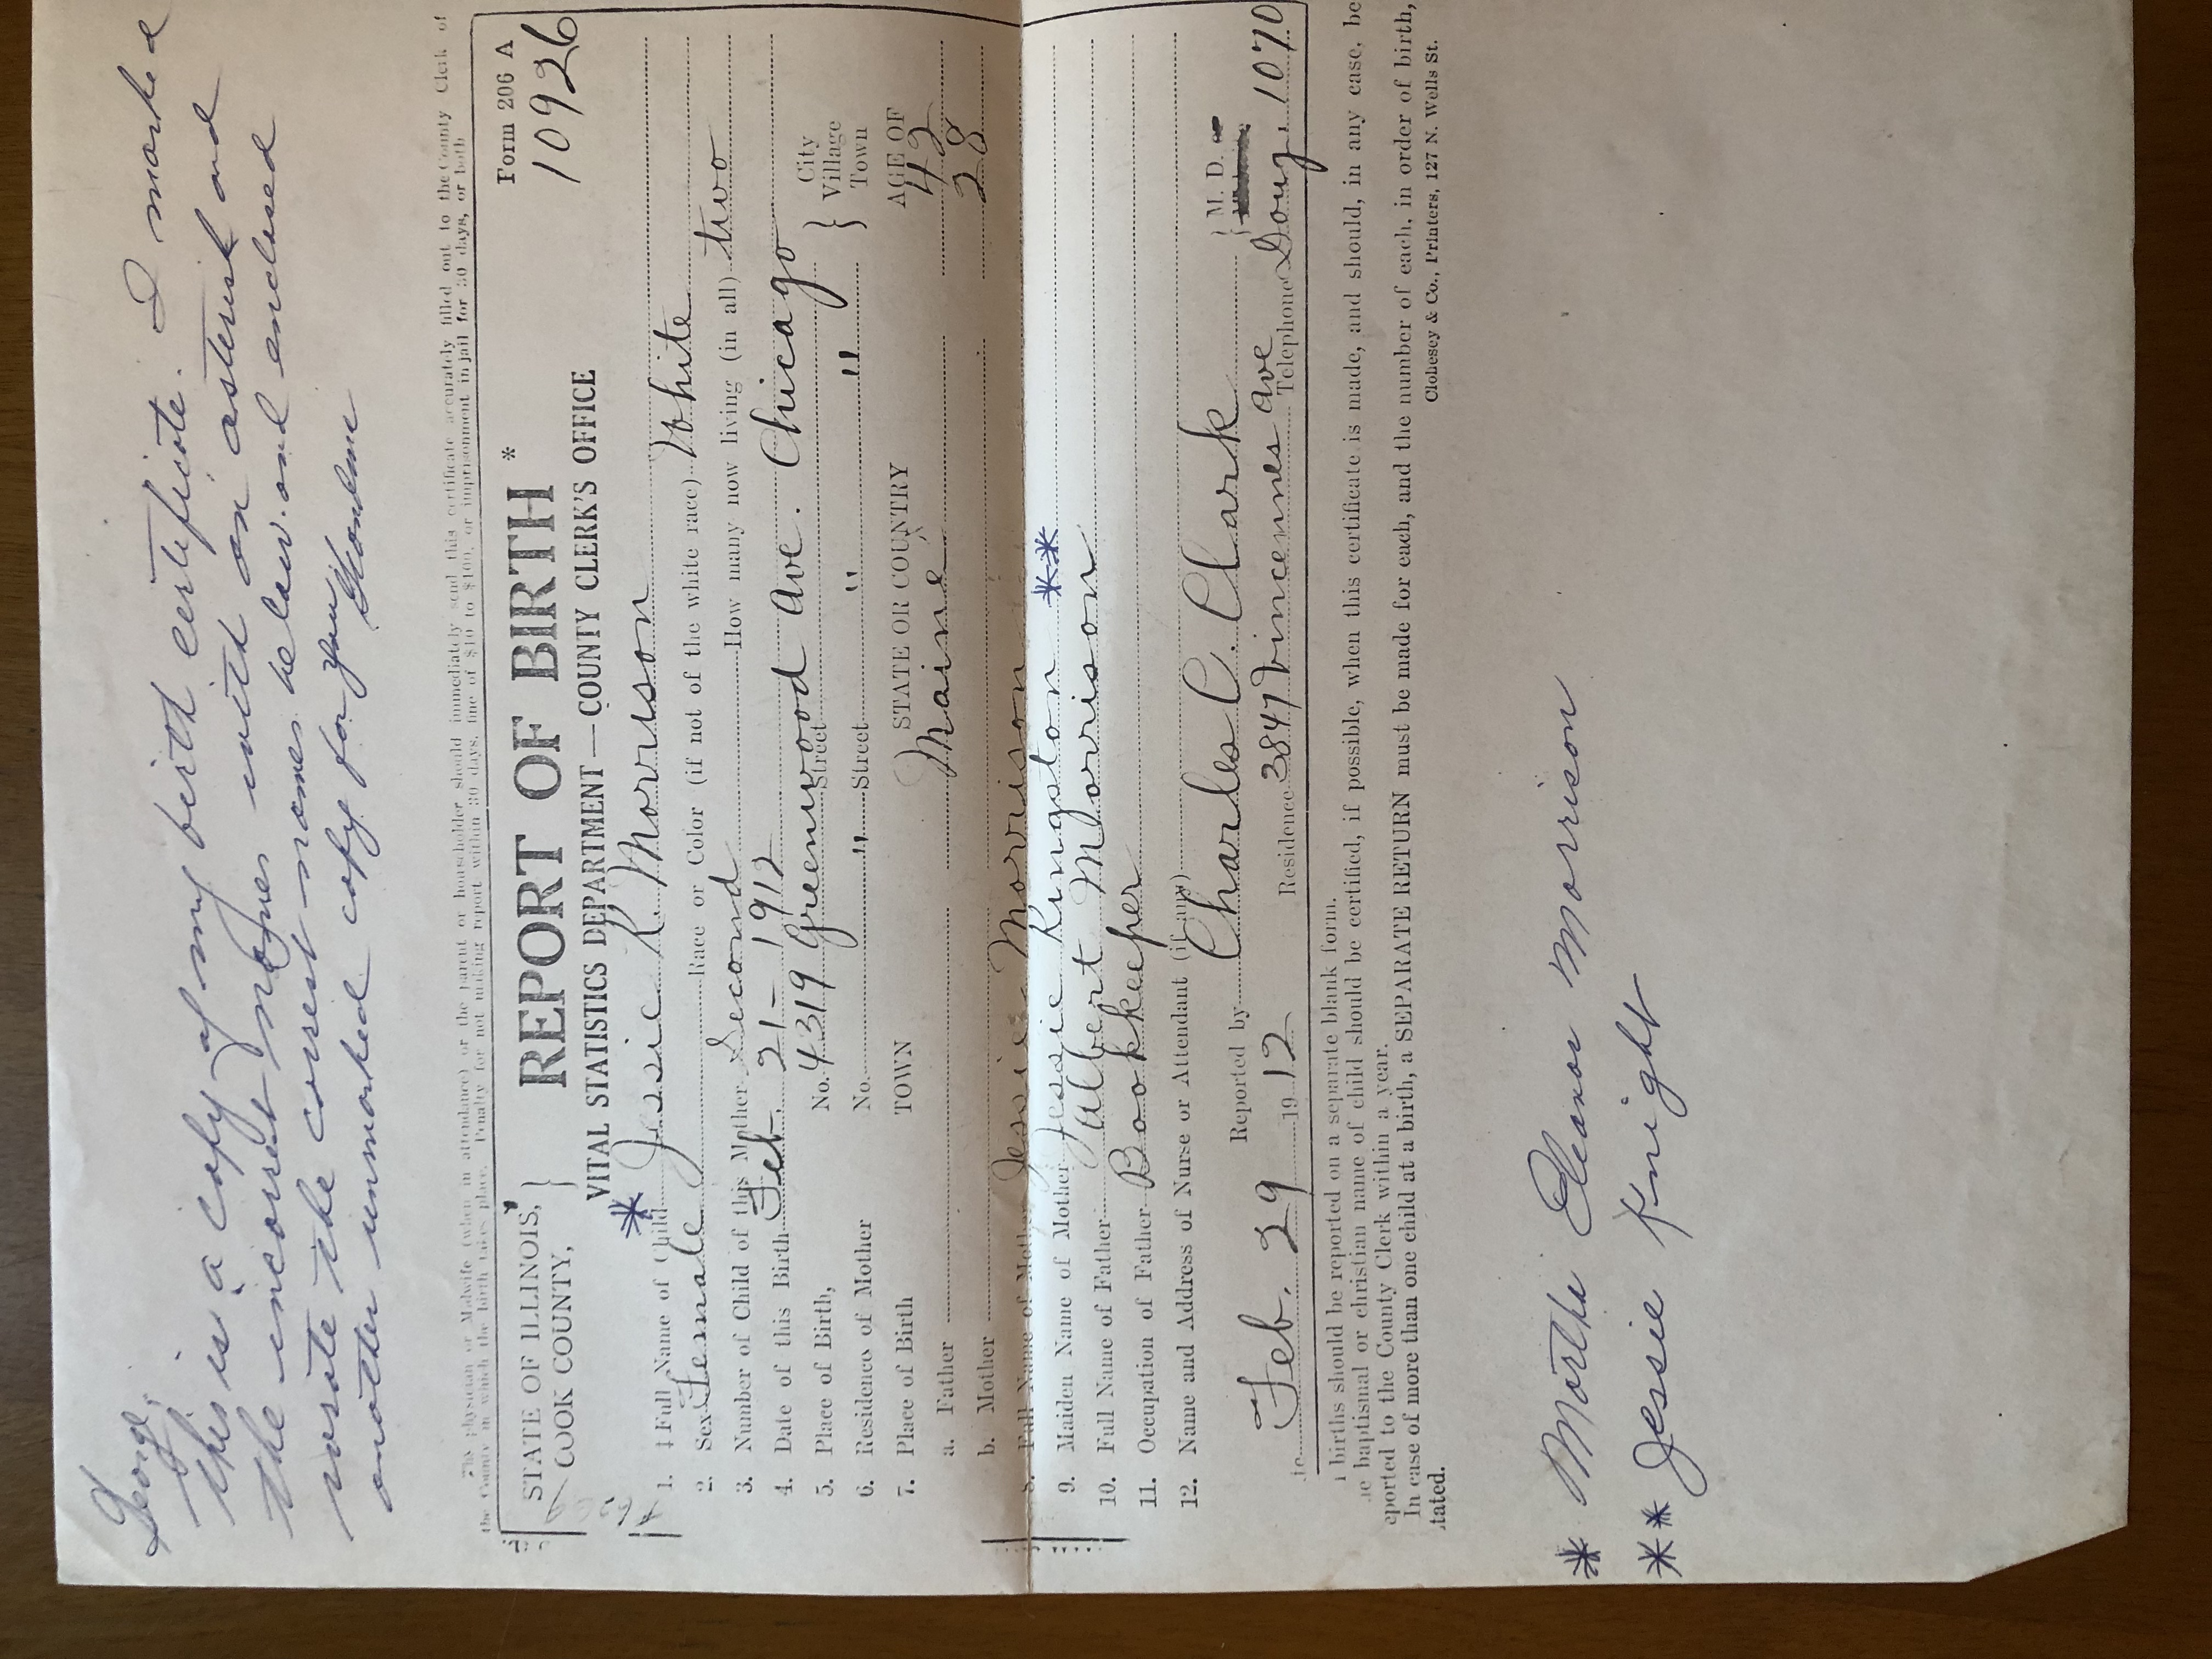 George,
this is a copy of my birth certificate. I marked
the incorrect names with an asterisk and
wrote the correct names below and enclosed
another unmarked copy for you, Grandma
The physician or Midwife (when in attendance) or the parent or householder should immediately send this certificate accurately filled out to the County Clerk of
the County in which the birth takes place. Penalty for not making report within 30 days, fine of $10 to $100, or imprisonment in jail for 30 days, or both
STATE OF ILLINOIS,
COOK COUNTY,
REPORT OF BIRTH *
Form 206 A
10926
VITAL STATISTICS DEPARTMENT — COUNTY CLERK'S OFFICE
1. ‡ Full Name of Child * Jessie K. Morrison
2. Sex Female Race or Color (if not of the white race) White
3. Number of Child of this Mother Second How many now living (in all) two
4. Date of this Birth Feb. 21 - 1912
5. Place of Birth, No. 4319 Greenwood Ave. Street Chicago City
Village
6. Residence of Mother No. " Street " " Town
7. Place of Birth TOWN STATE OR COUNTRY AGE OF
a. Father Maine 42
b. Mother 28
8. Full Name of Mother Jessie Morrison
9. Maiden Name of Mother Jessie Kingston **
10. Full Name of Father Albert Morrison
11. Occupation of Father Bookkeeper
12. Name and Address of Nurse or Attendant (if any)
Reported by Charles C. Clark M. D. or
Feb. 29 1912 Residence 3847 Vincennes Ave Telephone Doug. 1070
births should be reported on a separate blank form.
baptismal or christian name of child should be certified, if possible, when this certificate is made, and should, in any case, be
eported to the County Clerk within a year.
In case of more than one child at a birth, a SEPARATE RETURN must be made for each, and the number of each, in order of birth,
tated.
Clohesey & Co., Printers, 127 N. Wells St.
* Martha Eleanor Morrison
** Jessie Knight